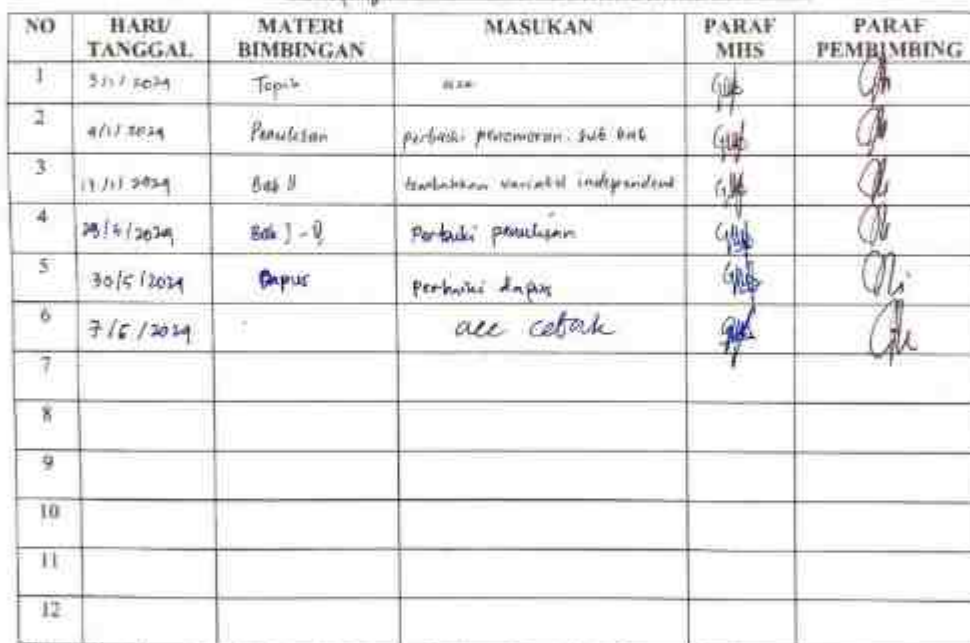 NO HARI/ TANGGAL MATERI BIMBINGAN MASUKAN PARAF MHS PARAF PEMBIMBING
1 Topik acc
2 Penulisan perbaiki penomoran sub bab
3 Bab II tambahkan variabel independent
4 Perbaiki penulisan
5 30/5/2024 Dapus perbaiki dapus
6 acc cetak
7
8
9
10
11
12